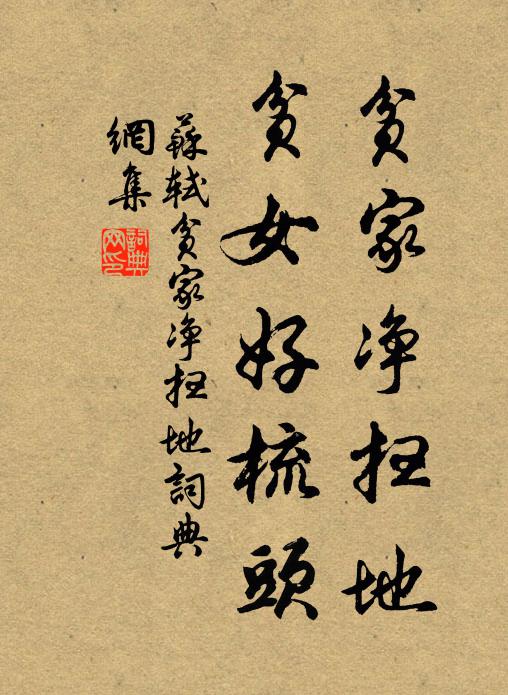 貧家净掃地
貧女好梳頭
蘇軾貧家净掃地詞典
網集
詞典網印